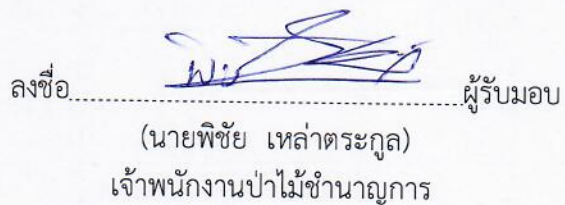 ลงชื่อ........................................................ผู้รับมอบ
(นายพิชัย เหล่าตระกูล)
เจ้าพนักงานป่าไม้ชำนาญการ